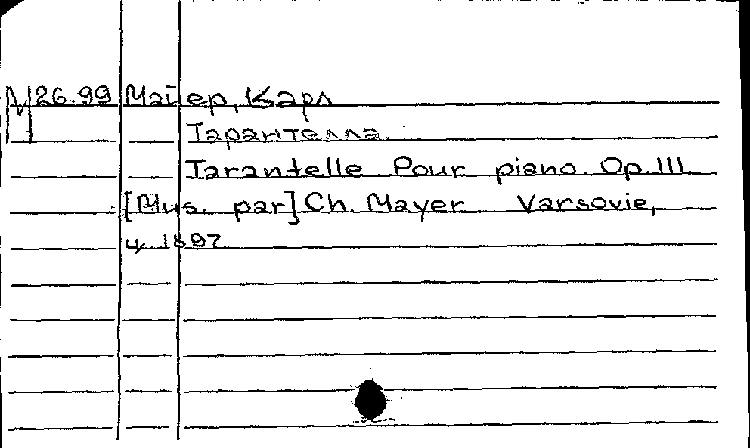 М 26.99 Майер, Карл
Тарантелла.
Tarantelle Pour piano. Op. 111
[Mus. par] Ch. Mayer Varsovie,
ц. 1897